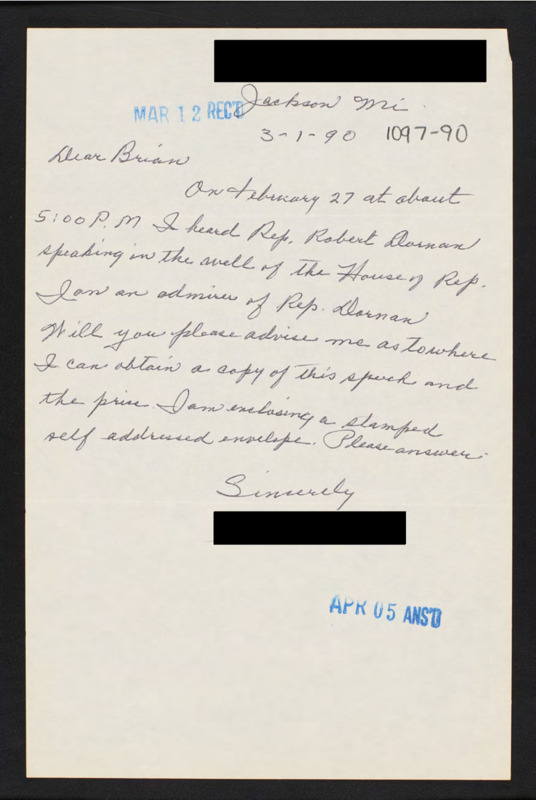 Jackson Mi.
MAR 12 REC'D
3-1-90 1097-90
Dear Brian
On February 27 at about
5:00 P.M I heard Rep. Robert Dornan
speaking in the well of the House of Rep.
I am an admirer of Rep. Dornan
Will you please advise me as to where
I can obtain a copy of this speech and
the price. I am enclosing a stamped
self addressed envelope. Please answer.
Sincerely
APR 05 ANS'D